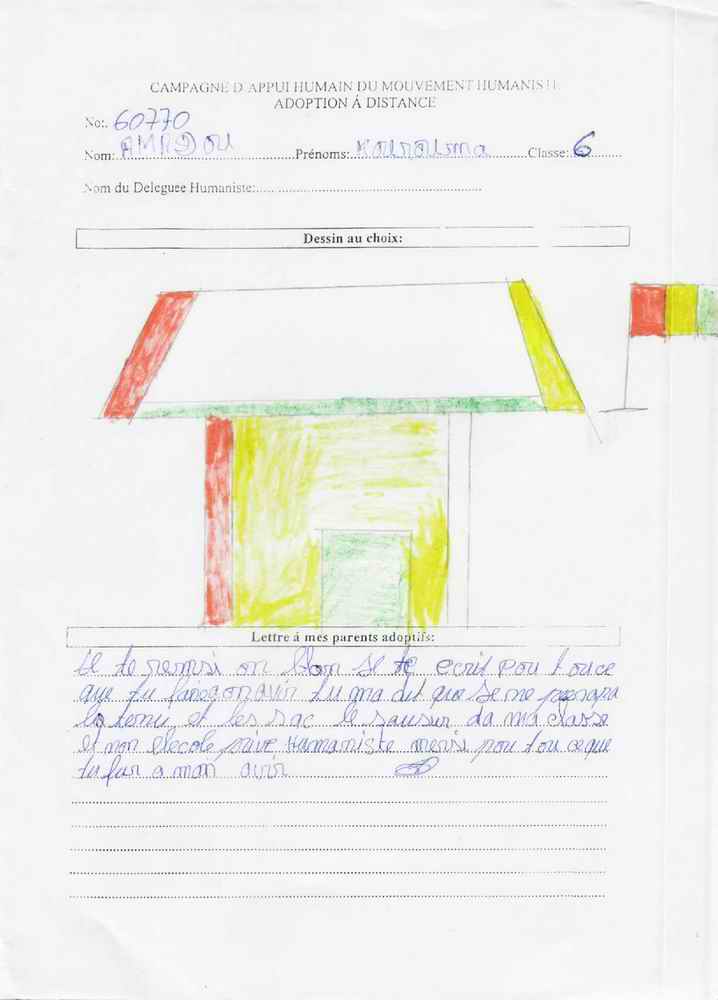 CAMPAGNE D'APPUI HUMAIN DU MOUVEMENT HUMANISTE
ADOPTION Á DISTANCE
No:. 60770
Nom: AMADOU Prénoms: Kourouma Classe: 6
Nom du Deleguee Humaniste:
Dessin au choix:
Lettre á mes parents adoptifs:
te remsi on se te ecrit pou touce
que tu tu ma dit que se ne
la tenu et les sac le da ma classe
et mon elecole prive Humaniste mersi pou tou ce que
tu fai a mon avir